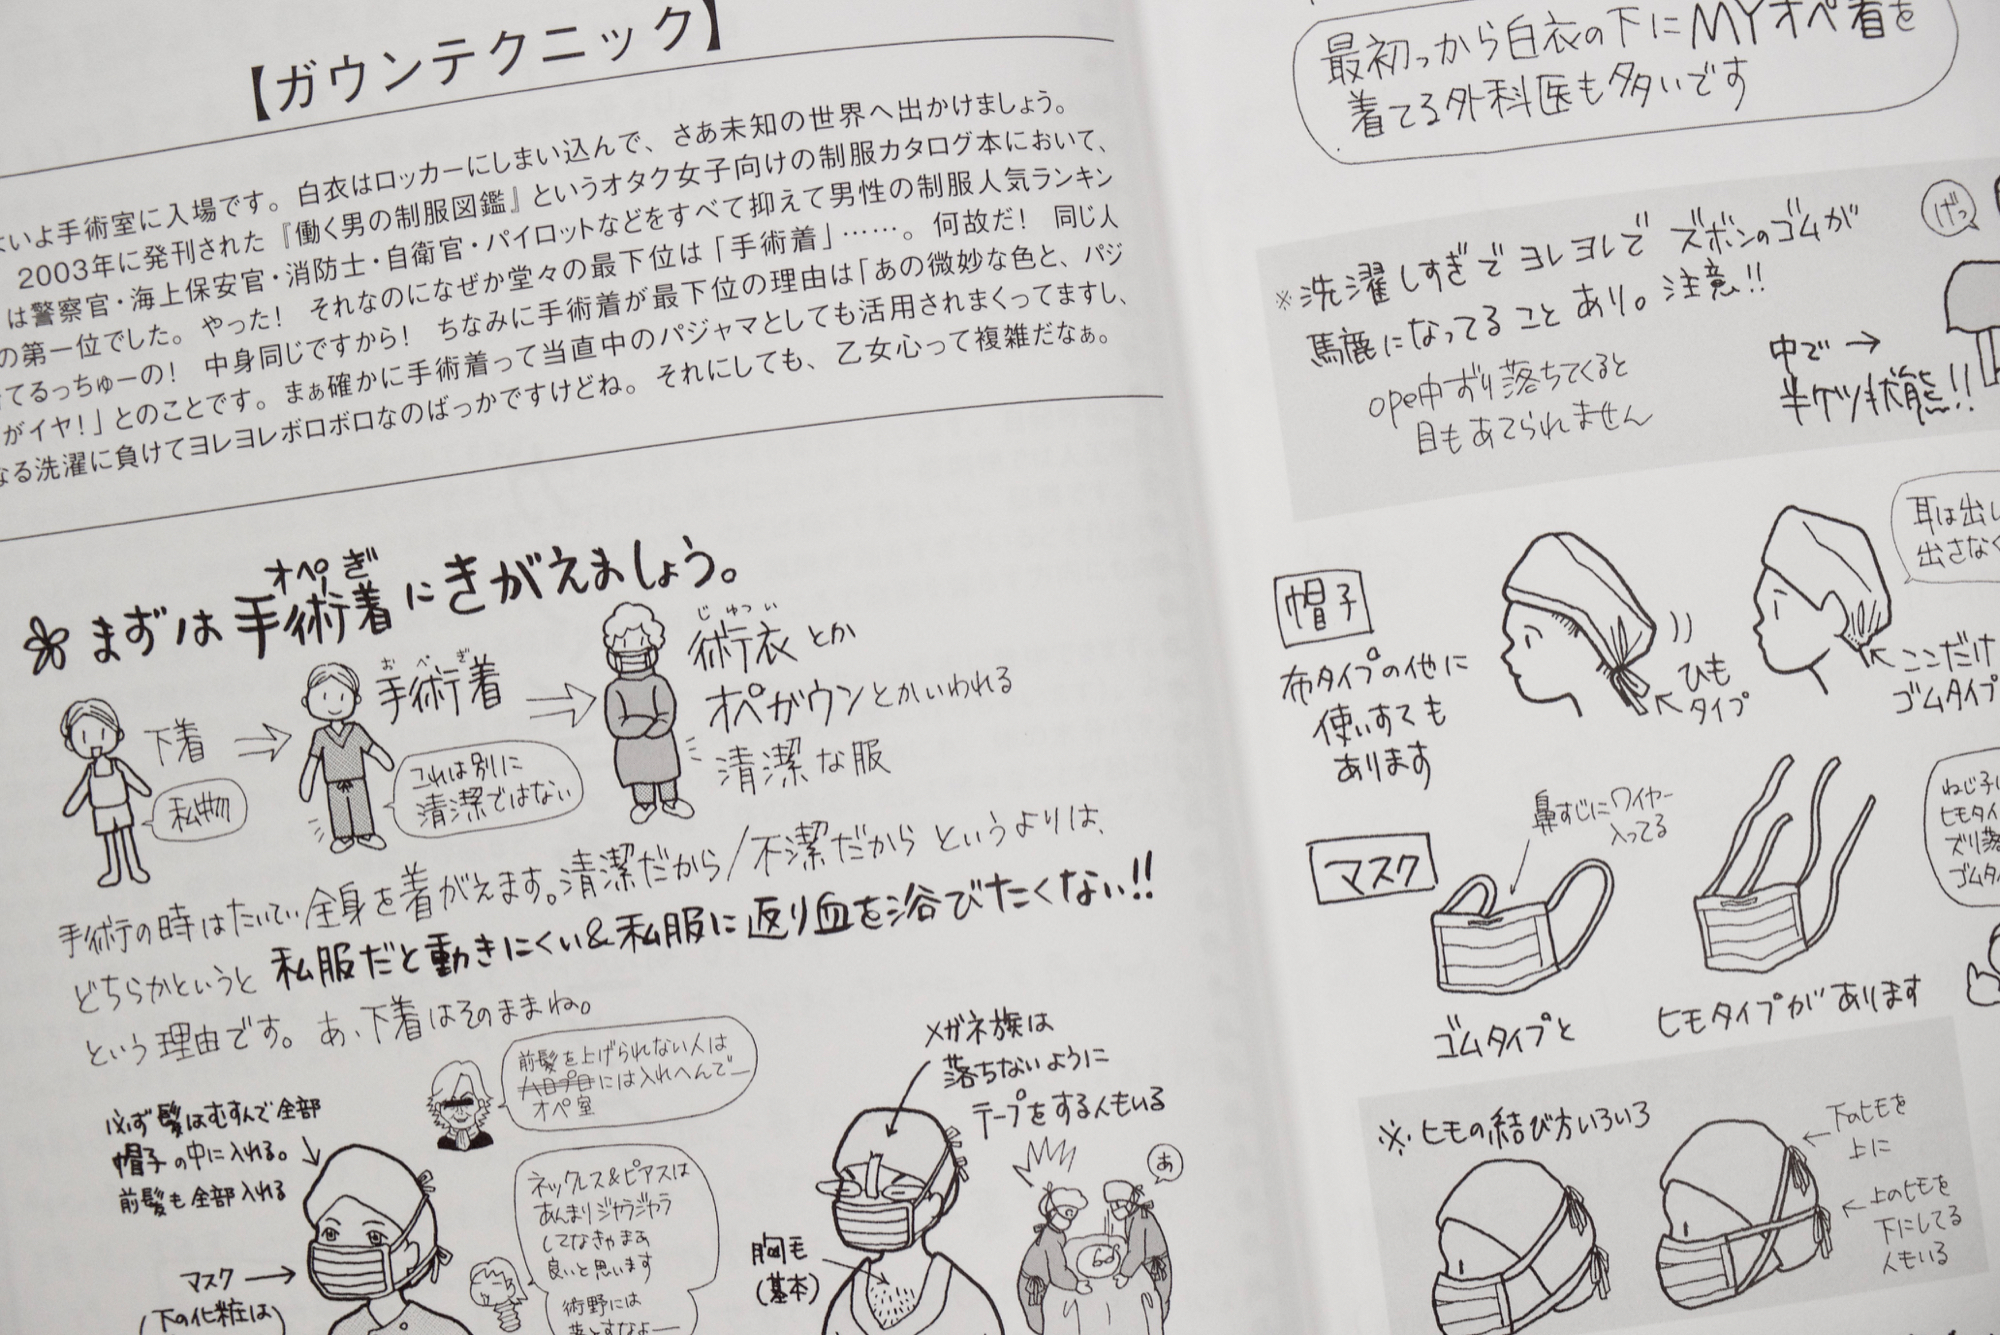 【ガウンテクニック】
いよ手術室に入場です。白衣はロッカーにしまい込んで、さあ未知の世界へ出かけましょう。
2003年に発刊された『働く男の制服図鑑』というオタク女子向けの制服カタログ本において、
は警察官・海上保安官・消防士・自衛官・パイロットなどをすべて抑えて男性の制服人気ランキン
の第一位でした。やった！ それなのになぜか堂々の最下位は「手術着」……。何故だ！ 同じ人
てるっちゅーの！ 中身同じですから！ ちなみに手術着が最下位の理由は「あの微妙な色と、パジ
がイヤ！」とのことです。まぁ確かに手術着って当直中のパジャマとしても活用されまくってますし、
なる洗濯に負けてヨレヨレボロボロなのばっかですけどね。それにしても、乙女心って複雑だなぁ。
まずは手術着にきがえましょう。
オペぎ
下着
私物
手術着
おぺぎ
これは別に
清潔ではない
じゅつい
術衣とか
オペガウンとかいわれる
清潔な服
手術の時はたいてい全身を着がえます。清潔だから/不潔だからというよりは、
どちらかというと私服だと動きにくい&私服に返り血を浴びたくない!!
という理由です。あ、下着はそのままね。
必ず髪はむすんで全部
帽子の中に入れる。
前髪も全部入れる
マスク→
(下の化粧は
前髪を上げられない人は
ハロプロには入れへんで―
オペ室
ネックレス&ピアスは
あんまりジャラジャラ
してなきゃまあ
良いと思います
術野には
落とすなよ―
メガネ族は
落ちないように
テープをする人もいる
胸毛
(基本)
あ
最初っから白衣の下にMYオペ着を
着てる外科医も多いです
※洗濯しすぎでヨレヨレでズボンのゴムが
馬鹿になってることあり。注意!!
ope中ずり落ちてくると
目もあてられません
げっ
中で→
半ケツ状態!!
帽子
布タイプの他に
使いすても
あります
ひも
タイプ
耳は出し
出さなく
ここだけ
ゴムタイプ
マスク
鼻すじにワイヤー
入ってる
ゴムタイプと
ヒモタイプがあります
ねじ子は
ヒモタイ
ズリ落
ゴムタイ
※ヒモの結び方いろいろ
←下のヒモを
上に
←上のヒモを
下にしてる
人もいる